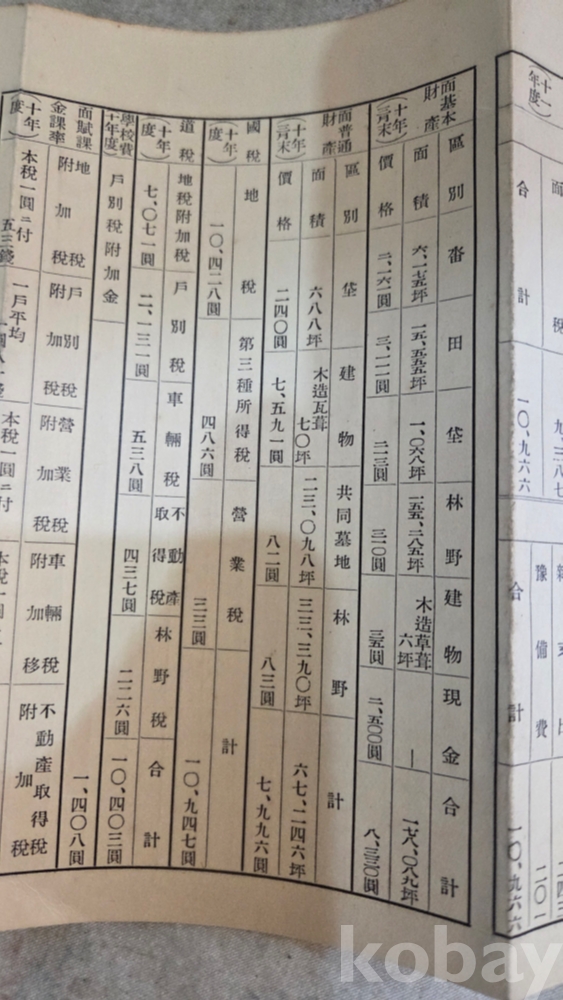 (十一年度)
面稅
合計
九、三八七
一〇、九六六
豫備費
合計
二四三
二〇一
一〇、九六六
面基本財產
(十年三月末)
區別 畓 田 垈 林野 建物 現金 合計
面積 六、一七五坪 一五、五九五坪 一、〇六八坪 一五五、二八五坪 木造草葺六坪 — 一七八、〇八九坪
價格 二、一六一圓 三、一一一圓 二一三圓 三一〇圓 三五圓 二、五〇〇圓 八、三三〇圓
面普通財產
(十年三月末)
區別 垈 建物 共同墓地 林野 計
面積 六八八坪 木造瓦葺七〇坪 二三、〇九八坪 三三、三九〇坪 六七、二四六坪
價格 二四〇圓 七、五九一圓 八二圓 八三圓 七、九九六圓
國稅
(十年度)
地稅 第三種所得稅 營業稅 計
一〇、四二八圓 四八六圓 三三圓 一〇、九四七圓
道稅
(十年度)
地稅附加稅 戶別稅 車輛稅 不動產取得稅 林野稅 合計
七、〇七一圓 二、一三一圓 五三八圓 四三七圓 二二六圓 一〇、四〇三圓
學校費
(十年度)
戶別稅附加金
一、四〇八圓
面賦課金課率
(十年度)
地稅附加稅 戶別稅附加稅 營業稅附加稅 車輛稅附加稅 不動產取得稅附加稅
本稅一圓ニ付 一戶平均 本稅一圓ニ付 本稅
五三錢
kobay